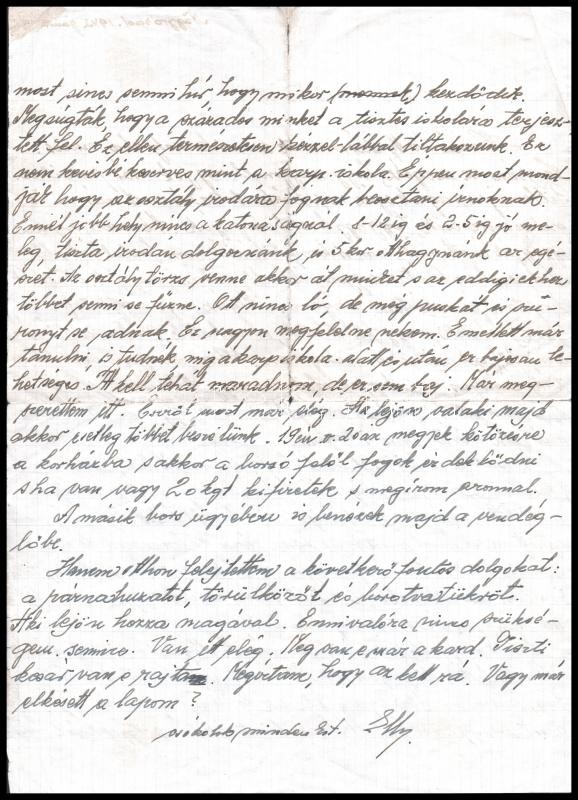 most sincs semmi hír, hogy mikor (mennek) kezdődik
Megsúgták, hogy a százados minket a tisztes iskolára terjesz-
tett fel. Ez ellen természetesen kézzel-lábbal tiltakozunk. Ez
nem kevésbé keserves mint a karp. iskola. Éppen most mond-
ják hogy az osztály irodára fognak beosztani irnoknak.
Ennél jobb hely nincs a katonaságnál. 8-12ig és 2-5ig jó me-
leg, tiszta irodán dolgoznánk, s 5kor otthagynánk az egé-
szet. Az osztálytörzs venne akkor át minket s az eddigiekhez
többet semmi se fűzne. Ott nincs ló, de még puskát és szú-
ronyt se adnak. Ez nagyon megfelelne nekem. Emellett már
tanulni is tudnék, míg a karp iskola alatt és után ez bajosan le-
hetséges. Itt kell tehát maradnom, de ez sem baj. Már meg-
szerettem itt. Erről most már elég. Ha lejön valaki majd
akkor esetleg többet beszélünk. 19én v. 20án megyek kötözésre
a kórházba s akkor a borsó felől fogok érdeklődni
s ha van vagy 20 kgt kifizetek s megírom azonnal.
A másik bors ügyében is benézek majd a vendég-
lőbe.
Hanem otthon felejtettem a következő fontos dolgokat:
a párnahuzatot, törülközőt és borotvatükröt.
Aki lejön hozza magával. Ennivalóra nincs szüksé-
gem semmire. Van itt elég. Meg van e már a kard. Tiszti
kosár van e rajta. Megírtam, hogy az kell rá. Vagy már
elkésett a lapom?
csókolok mindenkit. Elly